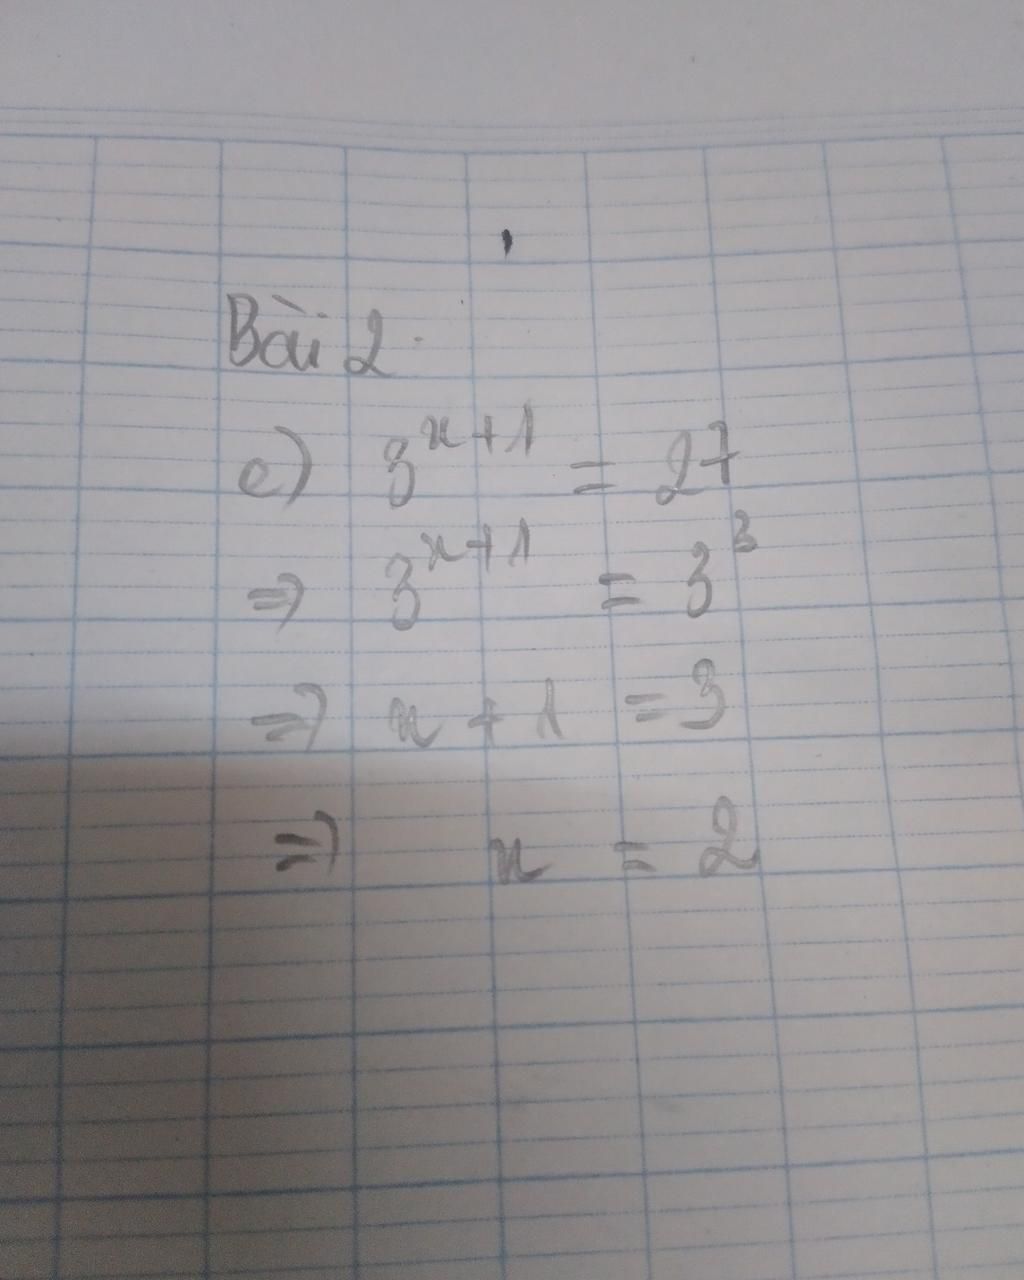 Bài 2
c) 3^{x+1} = 27
=> 3^{x+1} = 3^3
=> x + 1 = 3
=> x = 2